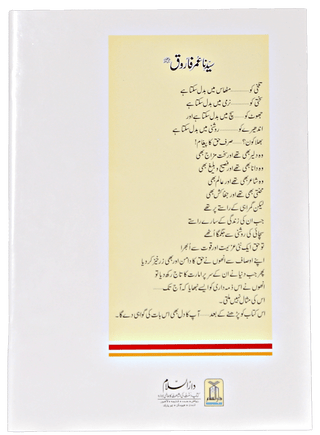 سیدنا عمر فاروق
تلخی کو ...... مٹھاس میں بدل سکتا ہے
سختی کو ...... نرمی میں بدل سکتا ہے
جھوٹ کو ...... سچ میں بدل سکتا ہے اور
اندھیرے کو ...... روشنی میں بدل سکتا ہے
بھلا کون؟ ...... صرف حق کا پیغام!
وہ دلیر بھی تھے اور سخت مزاج بھی
وہ دانا بھی تھے اور فصیح و بلیغ بھی
وہ شاعر بھی تھے اور عالم بھی
محنتی بھی تھے اور جفاکش بھی
لیکن گمراہی کے راستے پر تھے
جب ان کی زندگی کے سارے راستے
سچائی کی روشنی سے جگمگا اٹھے
تو حق ایک نئی عزیمت اور قوت سے ابھرا
اپنے اوصاف سے انھوں نے حق کا دامن اور بھی زرخیز کر دیا
پھر جب دنیا نے ان کے سر پر امارت کا تاج رکھ دیا تو
انھوں نے اس ذمہ داری کو ایسے نبھایا کہ آج تک ......
اس کی مثال نہیں ملتی۔
اس کتاب کو پڑھنے کے بعد ...... آپ کا دل بھی اس بات کی گواہی دے گا۔
دار السلام